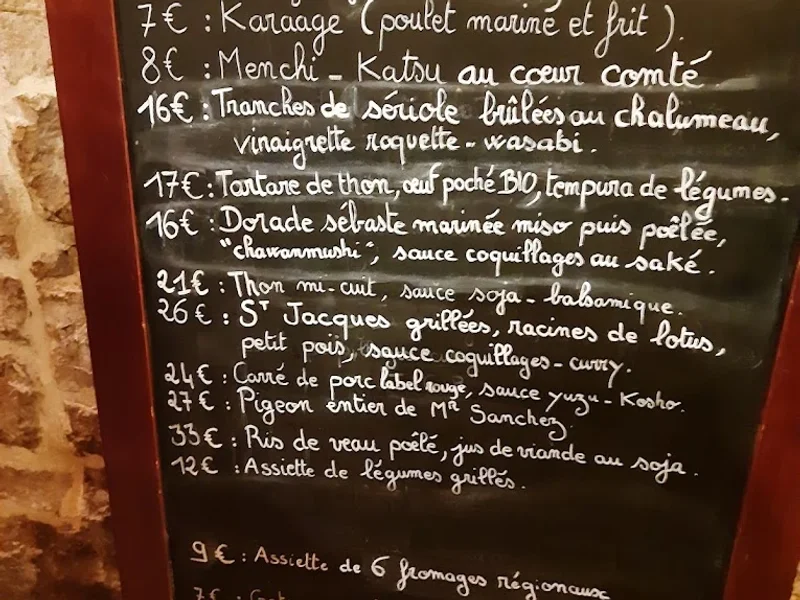 7€ : Karaage (poulet mariné et frit).
8€ : Menchi-Katsu au cœur comté
16€ : Tranches de sériole brûlées au chalumeau,
vinaigrette roquette-wasabi.
17€ : Tartare de thon, œuf poché BIO, tempura de légumes.
16€ : Dorade sébaste marinée miso puis poêlée,
"chawanmushi", sauce coquillages au saké.
21€ : Thon mi-cuit, sauce soja-balsamique.
26€ : St Jacques grillées, racines de lotus,
petit pois, sauce coquillages-curry.
24€ : Carré de porc label rouge, sauce yuzu-Kosho.
27€ : Pigeon entier de Mr Sanchez.
33€ : Ris de veau poêlé, jus de viande au soja.
12€ : Assiette de légumes grillés.
9€ : Assiette de 6 fromages régionaux
7€ :